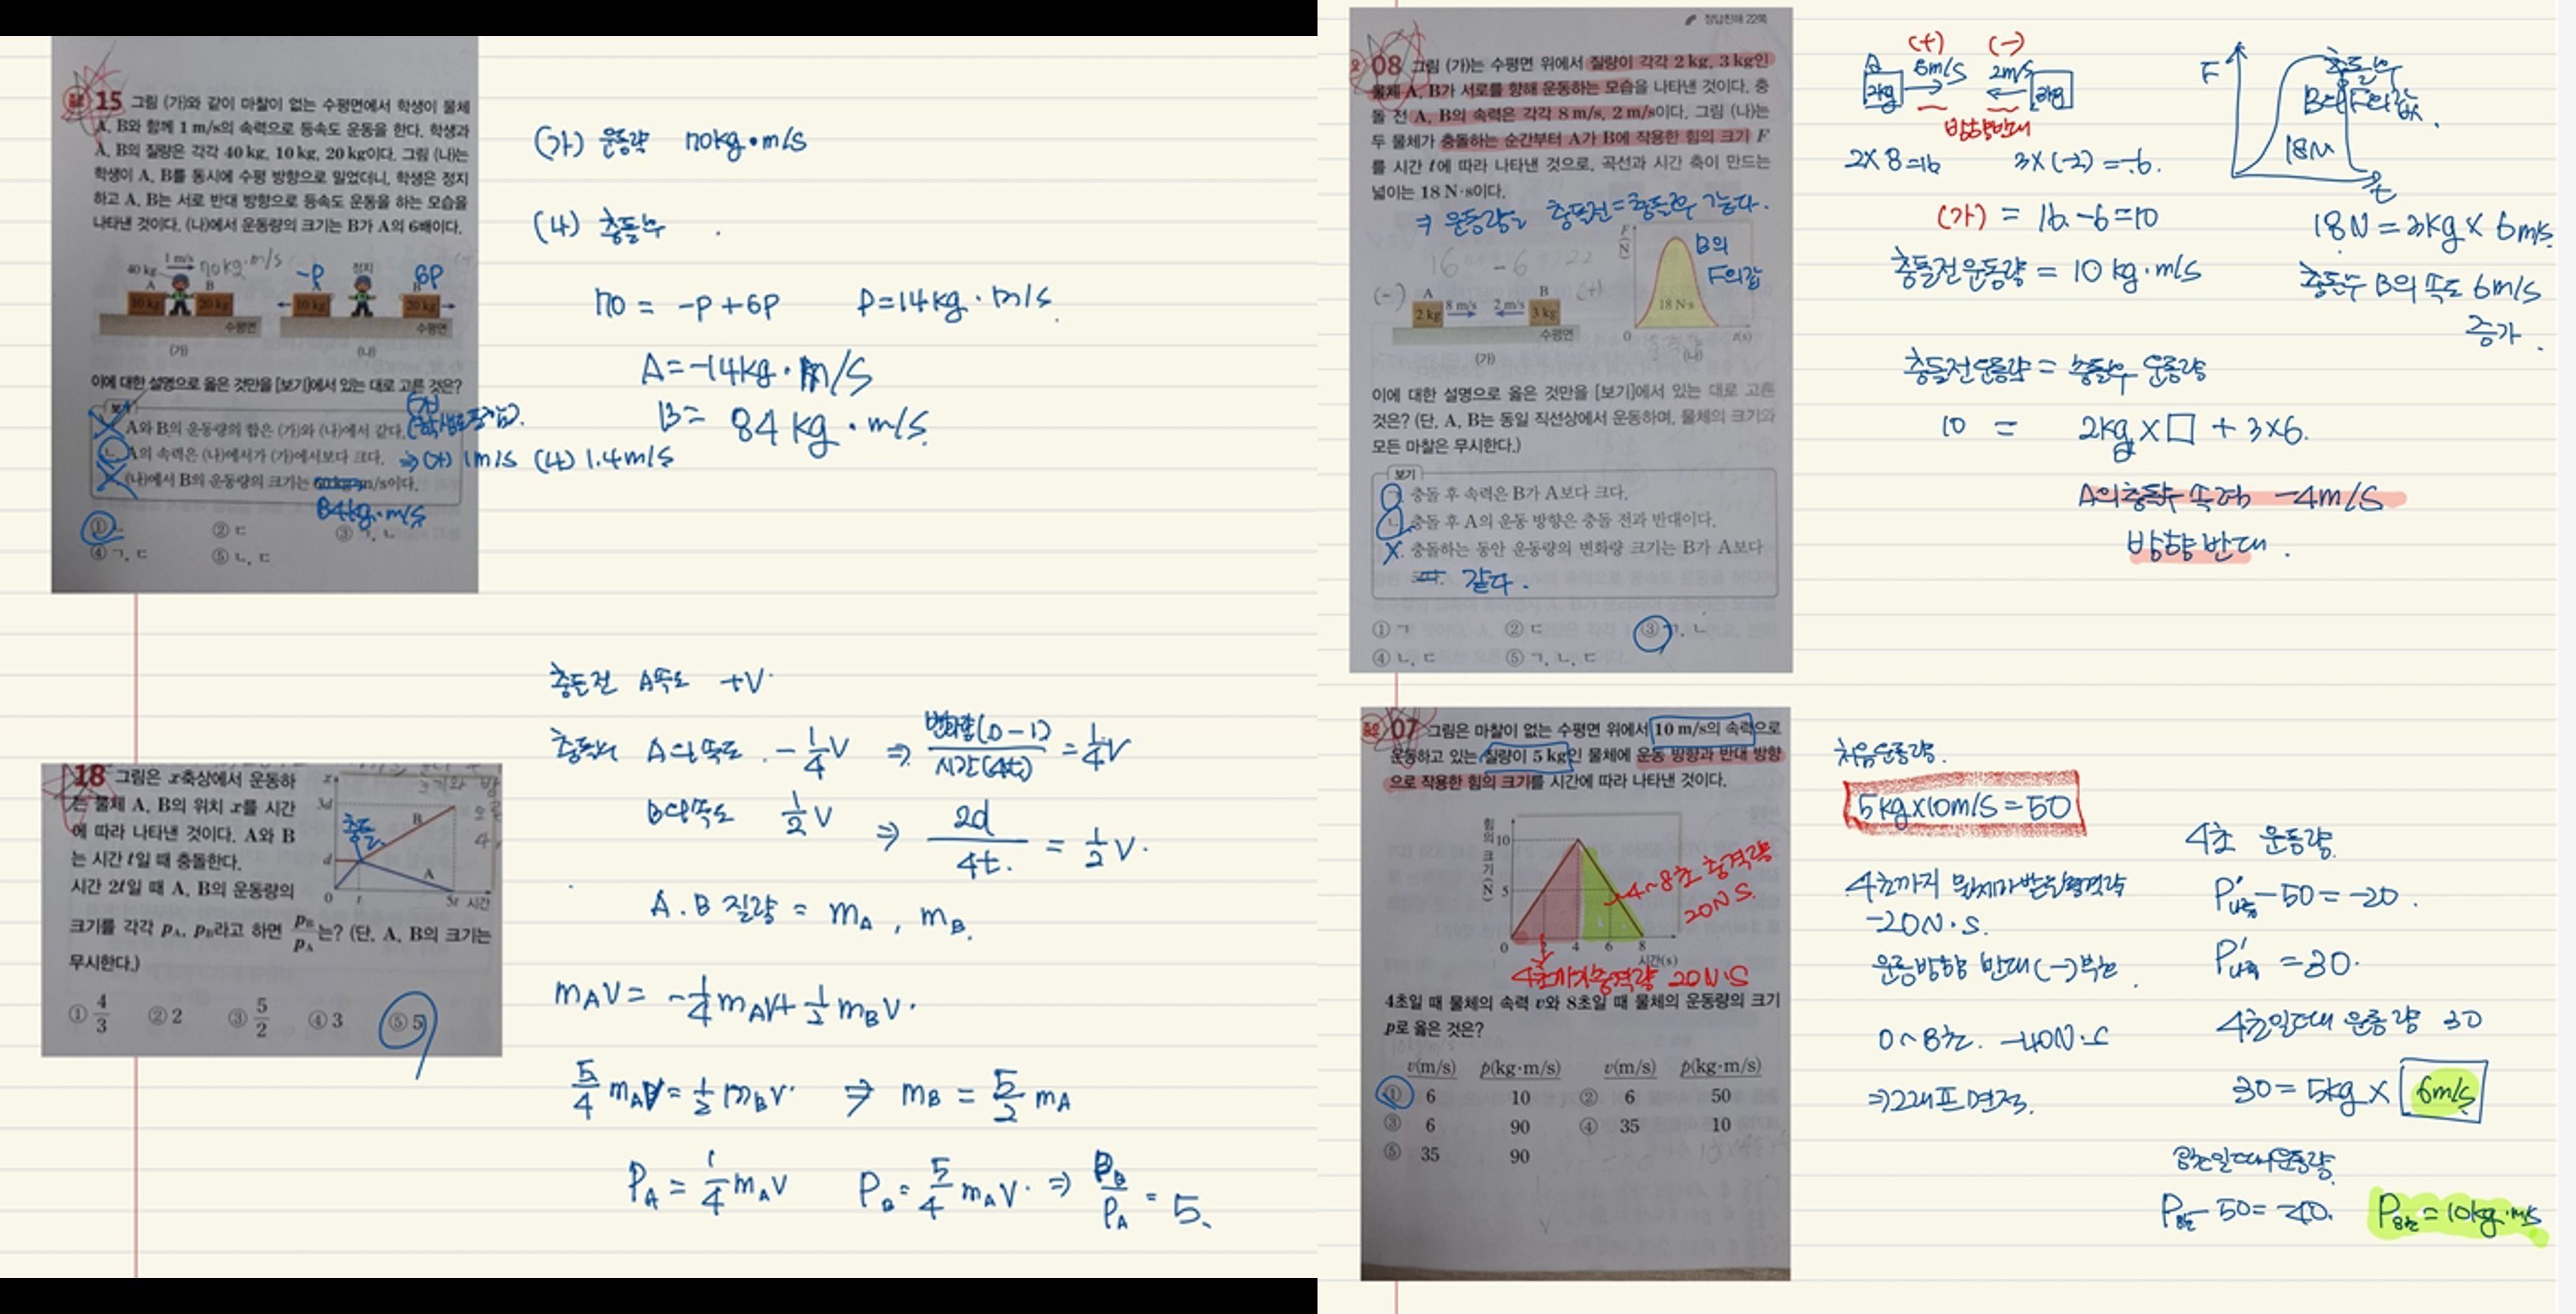 15 그림 (가)와 같이 마찰이 없는 수평면에서 학생이 물체
A, B와 함께 1 m/s의 속력으로 등속도 운동을 한다. 학생과
A, B의 질량은 각각 40 kg, 10 kg, 20 kg이다. 그림 (나)는
학생이 A, B를 동시에 수평 방향으로 밀었더니, 학생은 정지
하고 A, B는 서로 반대 방향으로 등속도 운동을 하는 모습을
나타낸 것이다. (나)에서 운동량의 크기는 B가 A의 6배이다.
40 kg 1 m/s 70kg·m/s -P 정지 6P
A B A B
10 kg 20 kg 10 kg 20 kg
수평면 수평면
(가) (나)
이에 대한 설명으로 옳은 것만을 [보기]에서 있는 대로 고른 것은?
보기
A와 B의 운동량의 합은 (가)와 (나)에서 같다.
ㄴ. A의 속력은 (나)에서가 (가)에서보다 크다. ⇒ (가) 1m/s (나) 1.4m/s
(나)에서 B의 운동량의 크기는 60 kg·m/s이다.
84kg·m/s
① ㄴ ② ㄷ ③ ㄱ, ㄴ
④ ㄱ, ㄷ ⑤ ㄴ, ㄷ
(가) 운동량 70kg·m/s
(나) 충돌후
70 = -P+6P P=14kg·m/s
A=-14kg·m/s
B= 84kg·m/s
18 그림은 x축상에서 운동하
는 물체 A, B의 위치 x를 시간
에 따라 나타낸 것이다. A와 B
는 시간 t일 때 충돌한다.
시간 2t일 때 A, B의 운동량의
크기를 각각 pA, pB라고 하면 pB/pA는? (단, A, B의 크기는
무시한다.)
x
3d
충돌 B
d
A
0 t 5t 시간
① 4/3 ② 2 ③ 5/2 ④ 3 ⑤ 5
충돌전 A속도 +V
충돌후 A의 속도 -1/4V ⇒ 변화량(0-1)/시간(4t) = 1/4V
B의 속도 1/2V ⇒ 2d/4t = 1/2V
A.B 질량 = mA, mB
mAV = -1/4mAV+1/2mBV
5/4mAV=1/2mBV ⇒ mB = 5/2mA
PA = 1/4mAV PB = 5/4mAV ⇒ PB/PA = 5
정답친해 22쪽
08 그림 (가)는 수평면 위에서 질량이 각각 2 kg, 3 kg인
물체 A, B가 서로를 향해 운동하는 모습을 나타낸 것이다. 충
돌 전 A, B의 속력은 각각 8 m/s, 2 m/s이다. 그림 (나)는
두 물체가 충돌하는 순간부터 A가 B에 작용한 힘의 크기 F
를 시간 t에 따라 나타낸 것으로, 곡선과 시간 축이 만드는
넓이는 18 N·s이다.
⇒ 운동량은 충돌전=충돌후 같다.
16 -6
F(N) B의
F의값
(-) A 8 m/s 2 m/s B (+)
2 kg 3 kg 18 N·s
수평면 0 t(s)
(가) (나)
이에 대한 설명으로 옳은 것만을 [보기]에서 있는 대로 고른
것은? (단, A, B는 동일 직선상에서 운동하며, 물체의 크기와
모든 마찰은 무시한다.)
보기
ㄱ. 충돌 후 속력은 B가 A보다 크다.
ㄴ. 충돌 후 A의 운동 방향은 충돌 전과 반대이다.
충돌하는 동안 운동량의 변화량 크기는 B가 A보다
같다.
① ㄱ ② ㄷ ③ ㄱ, ㄴ
④ ㄴ, ㄷ ⑤ ㄱ, ㄴ, ㄷ
(+) (-)
A 8m/s 2m/s
2kg 3kg
방향반대
2×8=16 3×(-2)=-6.
(가) = 16-6=10
충돌전운동량 = 10kg·m/s
F 충돌후
B의 F의값
18N
t
18N=3kg×6m/s
충돌후 B의 속도 6m/s
증가.
충돌전운동량 = 충돌후 운동량
10 = 2kg×□+3×6.
A의충돌후 속력 -4m/s
방향반대.
07 그림은 마찰이 없는 수평면 위에서 10 m/s의 속력으로
운동하고 있는 질량이 5 kg인 물체에 운동 방향과 반대 방향
으로 작용한 힘의 크기를 시간에 따라 나타낸 것이다.
힘의 크기(N)
10
5
0 2 4 6 8
시간(s)
4~8초 충격량
20N·S.
4초까지충격량 20N·S
4초일 때 물체의 속력 v와 8초일 때 물체의 운동량의 크기
p로 옳은 것은?
v(m/s) p(kg·m/s) v(m/s) p(kg·m/s)
① 6 10 ② 6 50
③ 6 90 ④ 35 10
⑤ 35 90
처음운동량.
5kg×10m/s=50
4초까지 물체가받은충격량
-20N·S.
운동방향 반대(-)부호.
0~8초. -40N·S
⇒그래프 면적.
4초 운동량.
P'나중-50=-20.
P'나중=30.
4초일때 운동량 30
30=5kg×6m/s
8초일때운동량.
P8초-50=-40. P8초=10kg·m/s